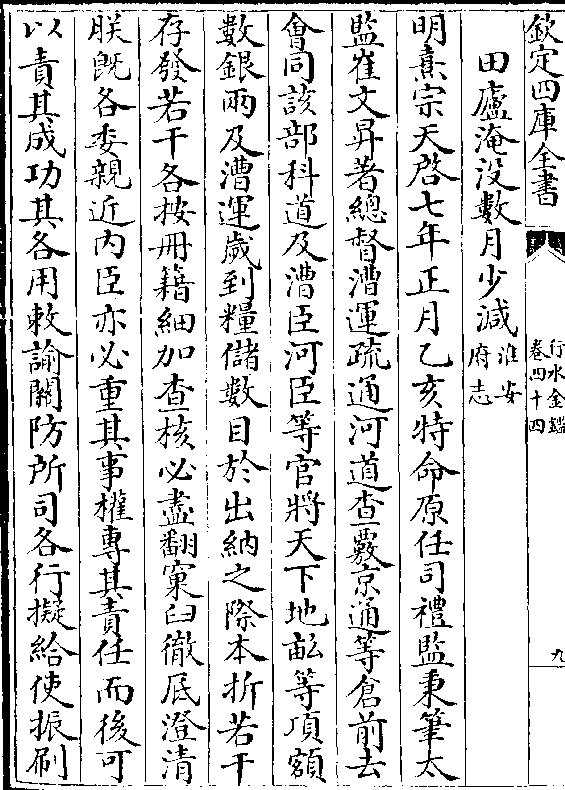 欽定四庫全書
行水金鑑
卷四十四
九
田廬淹没數月少減淮安府志
明熹宗天啓七年正月乙亥特命原任司禮監秉筆太
監崔文昇著總督漕運疏通河道查覈京通等倉前去
會同該部科道及漕臣河臣等官將天下地畆等項額
數銀兩及漕運歲到糧儲數目於出納之際本折若干
存發若干各按册籍細加查核必盡翻窠臼徹底澄清
朕既各委親近内臣亦必重其事權專其責任而後可
以責其成功其各用敕諭關防所司各行擬給使振刷